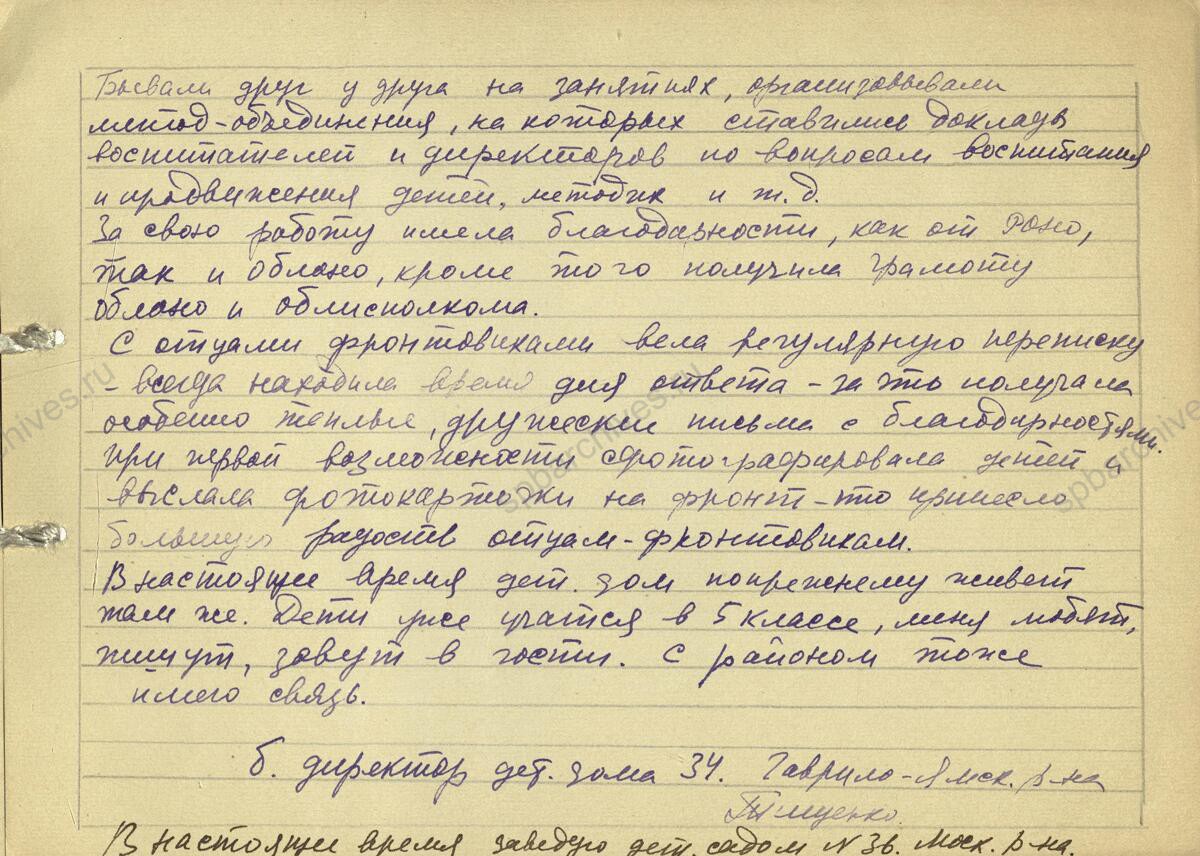 Бывали друг у друга на занятиях, организовывали
метод-объединения, на которых ставились доклады
воспитателей и директоров по вопросам воспитания
и продвижения детей, методик и т.д.
За свою работу имела благодарности, как от Роно,
так и облоно, кроме того получила грамоту
облоно и облисполкома.
С отцами фронтовиками вела регулярную переписку
- всегда находила время для ответа - за что получала
особенно теплые, дружеские письма с благодарностями.
При первой возможности сфотографировала детей и
выслала фотокарточки на фронт - что принесло
большую радость отцам-фронтовикам.
В настоящее время дет. дом попрежнему живет
там же. Дети уже учатся в 5 классе, меня любят,
пишут, зовут в гости. С районом тоже
имею связь.
б. директор дет. дома 34. Гаврило-Ямск. р-на
Тищенко
В настоящее время заведую дет. садом N 36. Моск. р-на.
spbarchives.ru
spbarchives.ru
spbarchives